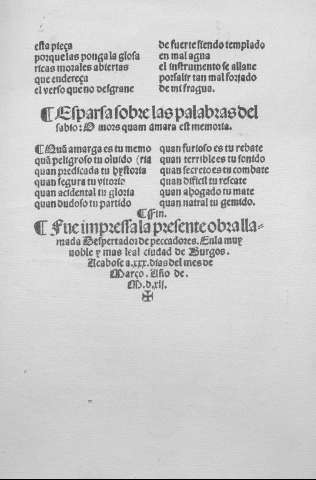 esta pieça
porque las ponga la glosa
ricas morales abiertas
que endereça
el verso que no desgrane
de fuerte siendo templado
en mal agua
el instrumento se allane
por salir tan mal forjado
de mi fragua.
¶ Esparsa sobre las palabras del
sabio: O mors quam amara est memoria.
¶ Quã amarga es tu memo
quã peligroso tu oluido (ria
quan predicada tu hystoria
quan segura tu vitorio
quan acidental tu gloria
quan dudoso tu partido
quan furioso es tu rebate
quan terrible es tu sonido
quan secreto es tu combate
quan dificil tu rescate
quan ahogado tu mate
quan natral tu gemido.
¶ Fin.
¶ Fue impressa la presente obra lla-
mada Despertador de peccadores. En la muy
noble y mas leal ciudad de Burgos.
Acabose a .xxx. dias del mes de
Março. Año de.
M.d.xij.